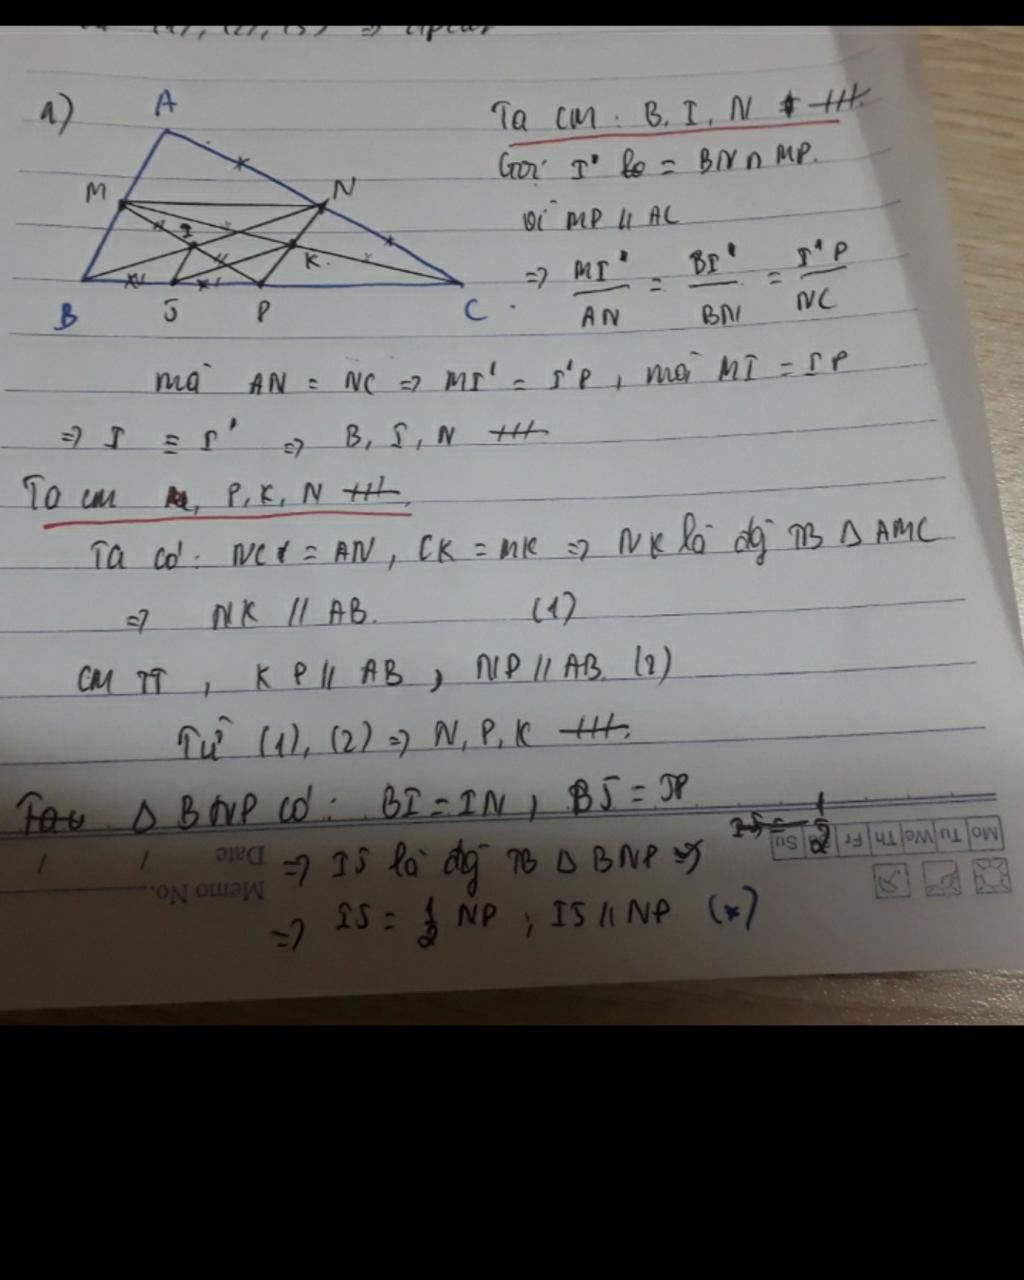 a)
A
M
N
I
K
B
J
P
C
Ta cm : B, I, N
Gọi I' là = BN ∩ MP.
Vì MP // AC
=> MI'/AN = BI'/BN = I'P/NC
mà AN = NC => MI' = I'P, mà MI = IP
=> I ≡ I' => B, I, N
Ta cm P, K, N
Ta có: NC = AN, CK = MK => NK là đg TB Δ AMC
=> NK // AB. (1)
CM TT, KP // AB, NP // AB. (2)
Từ (1), (2) => N, P, K
Δ BNP có: BI = IN, BJ = JP
=> IJ là đg TB Δ BNP =>
=> IJ = 1/2 NP ; IJ // NP (*)
Mo Tu We Th Fr Su
Memo No.
Date / /